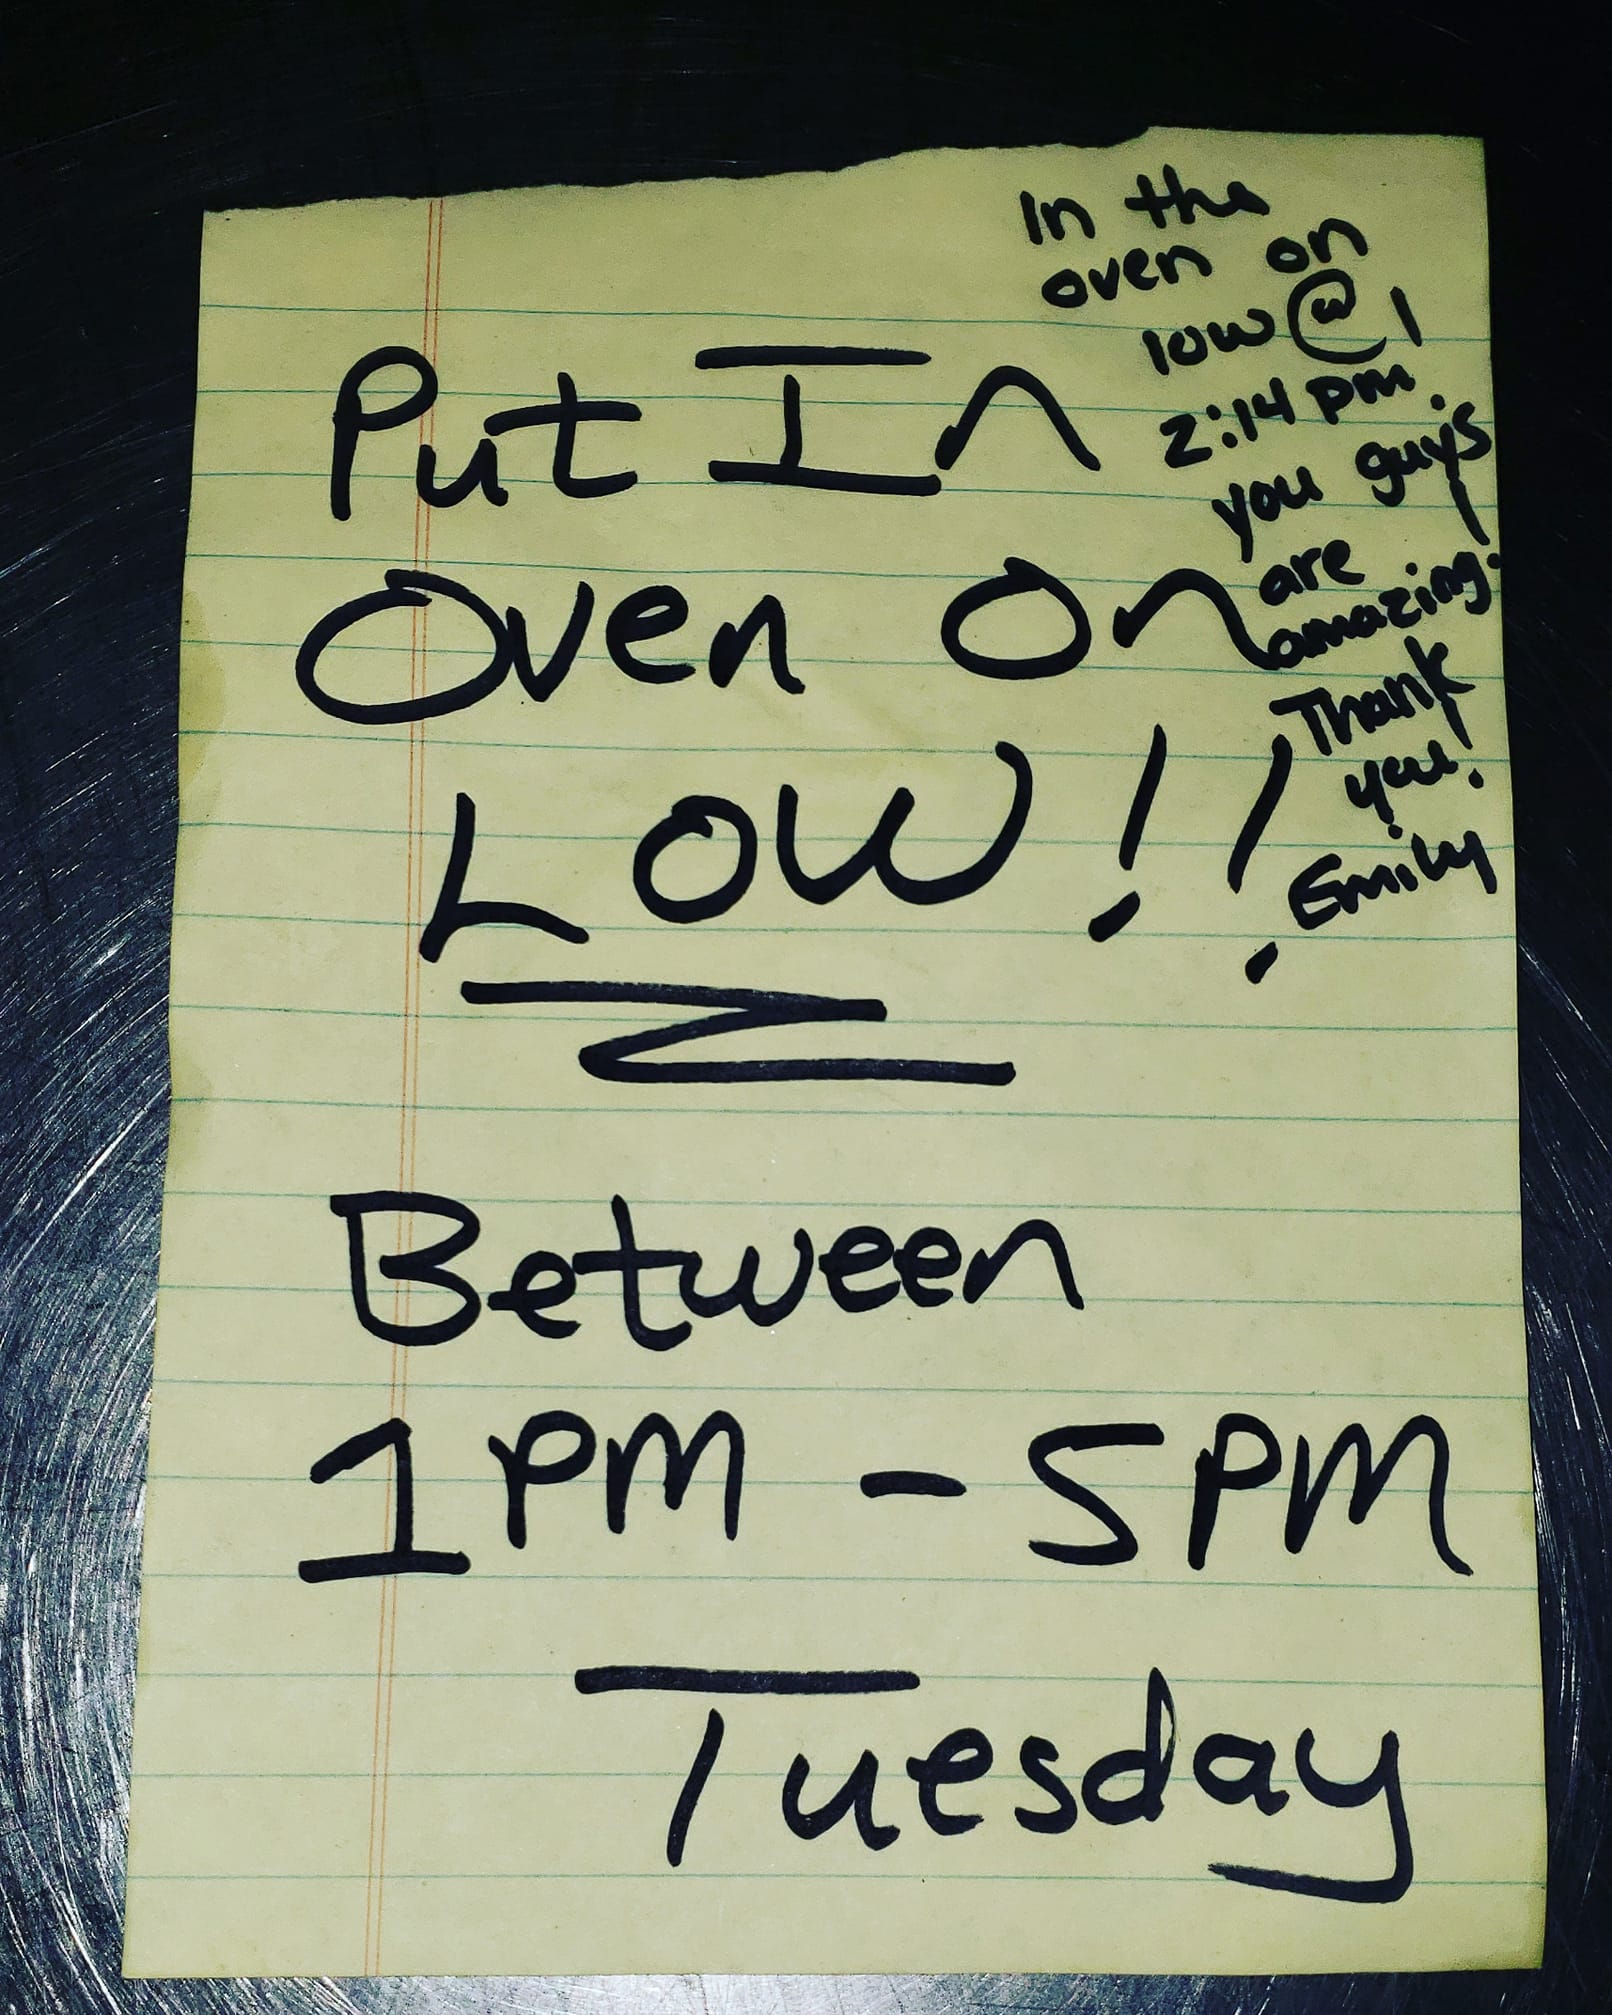 Put In
Oven On
LOW!!
Between
1PM - 5PM
Tuesday
In the
oven on
low @
2:14 pm!
you guys
are
amazing!
Thank
you!
Emily